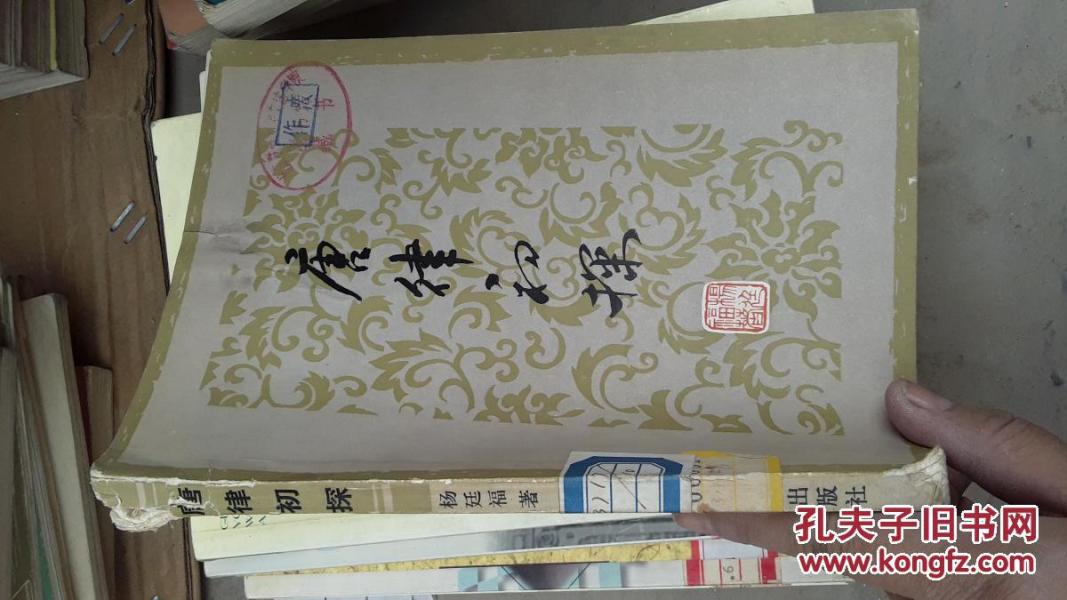 唐律初探
作废
书
唐律初探
杨廷福著
出版社
.6
孔夫子旧书网
www.kongfz.com